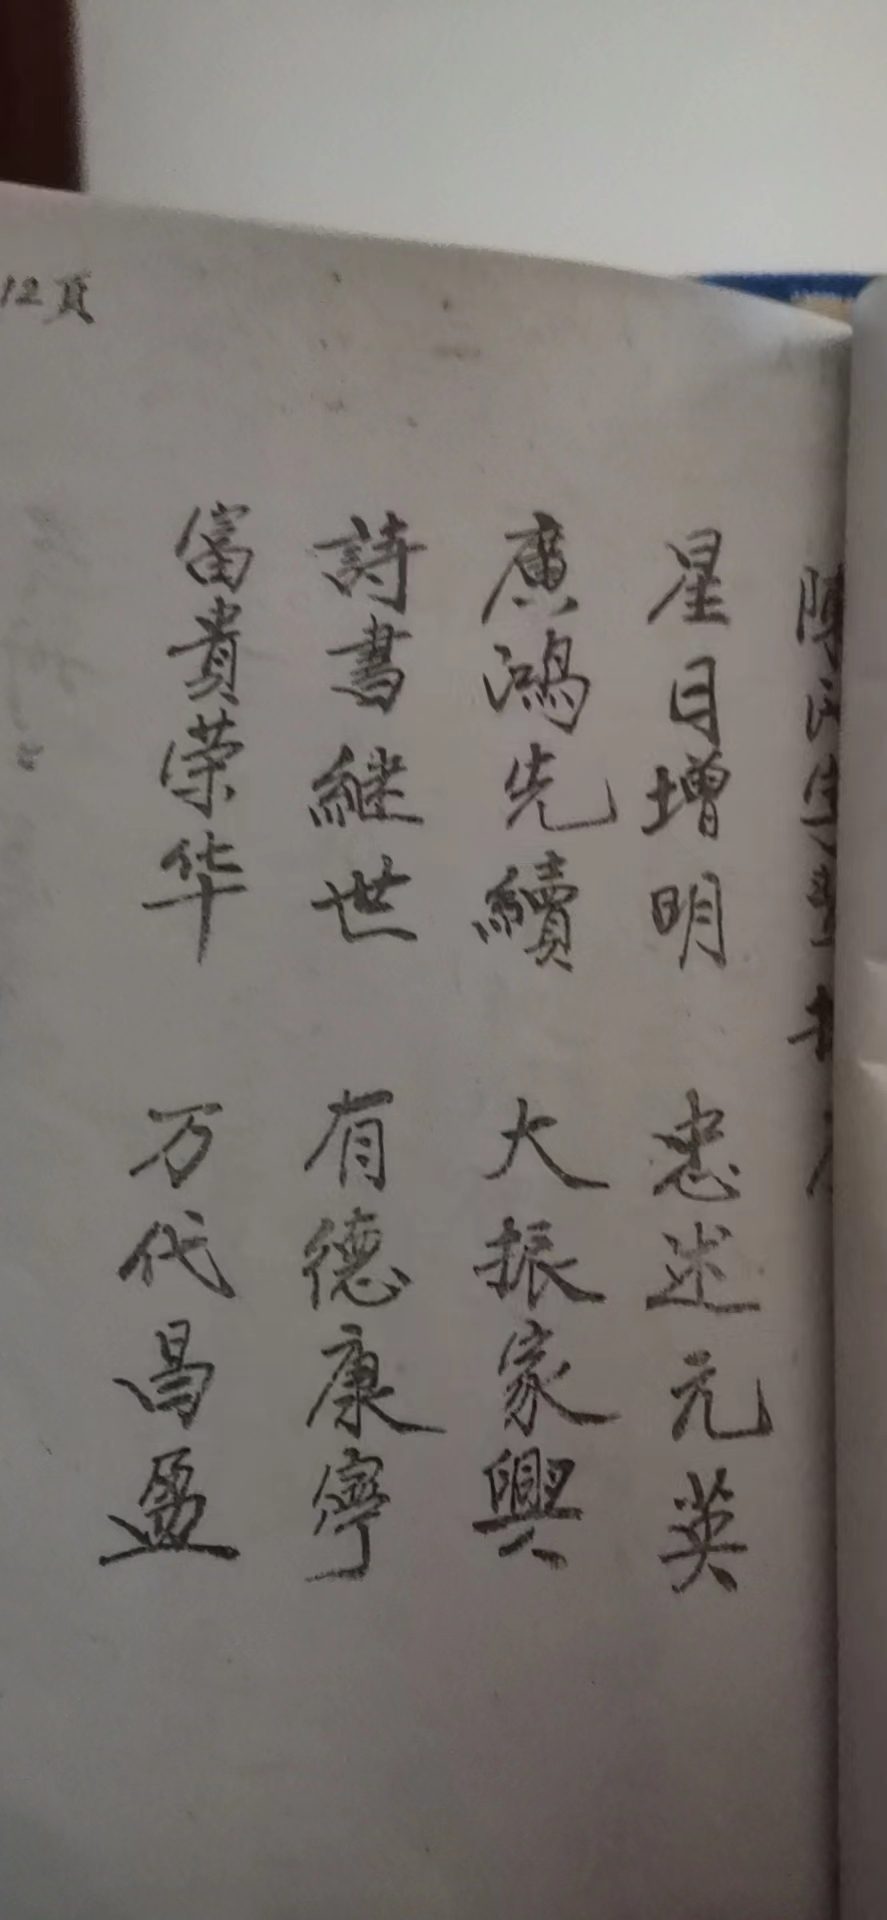 12頁
星日增明 忠述元英
廣鴻先續 大振家興
詩書継世 有德康寧
富貴荣华 万代昌盈